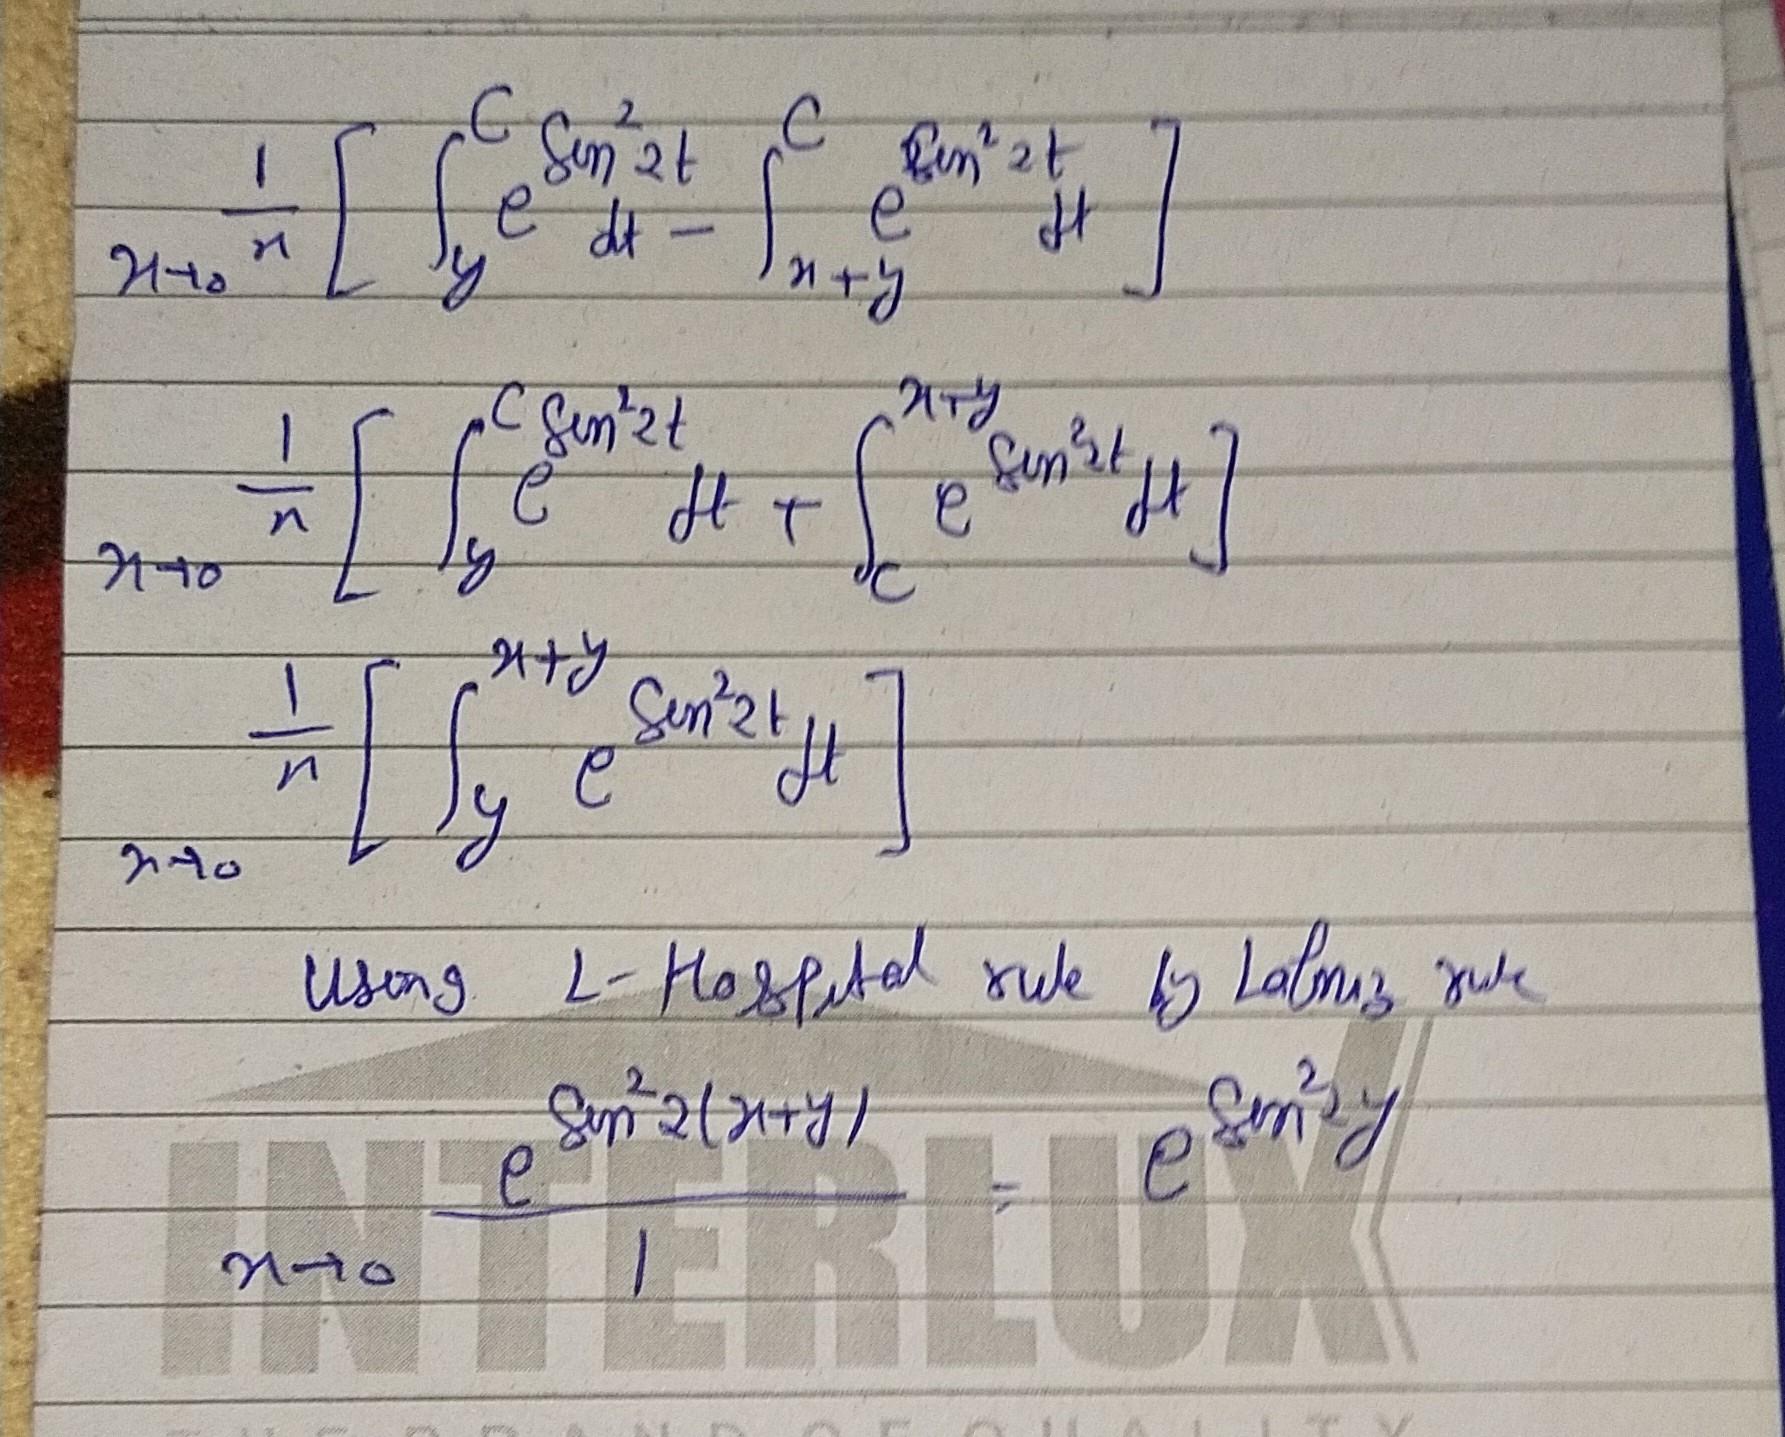 1/x [ ∫_y^C e^{sin²2t} dt - ∫_{x+y}^C e^{sin²2t} dt ]
x→0
1/x [ ∫_y^C e^{sin²2t} dt + ∫_C^{x+y} e^{sin²2t} dt ]
x→0
1/x [ ∫_y^{x+y} e^{sin²2t} dt ]
x→0
Using L-Hospital rule by Labniz rule
e^{sin²2(x+y)} / 1 = e^{sin²2y}
x→0
INTERLUX